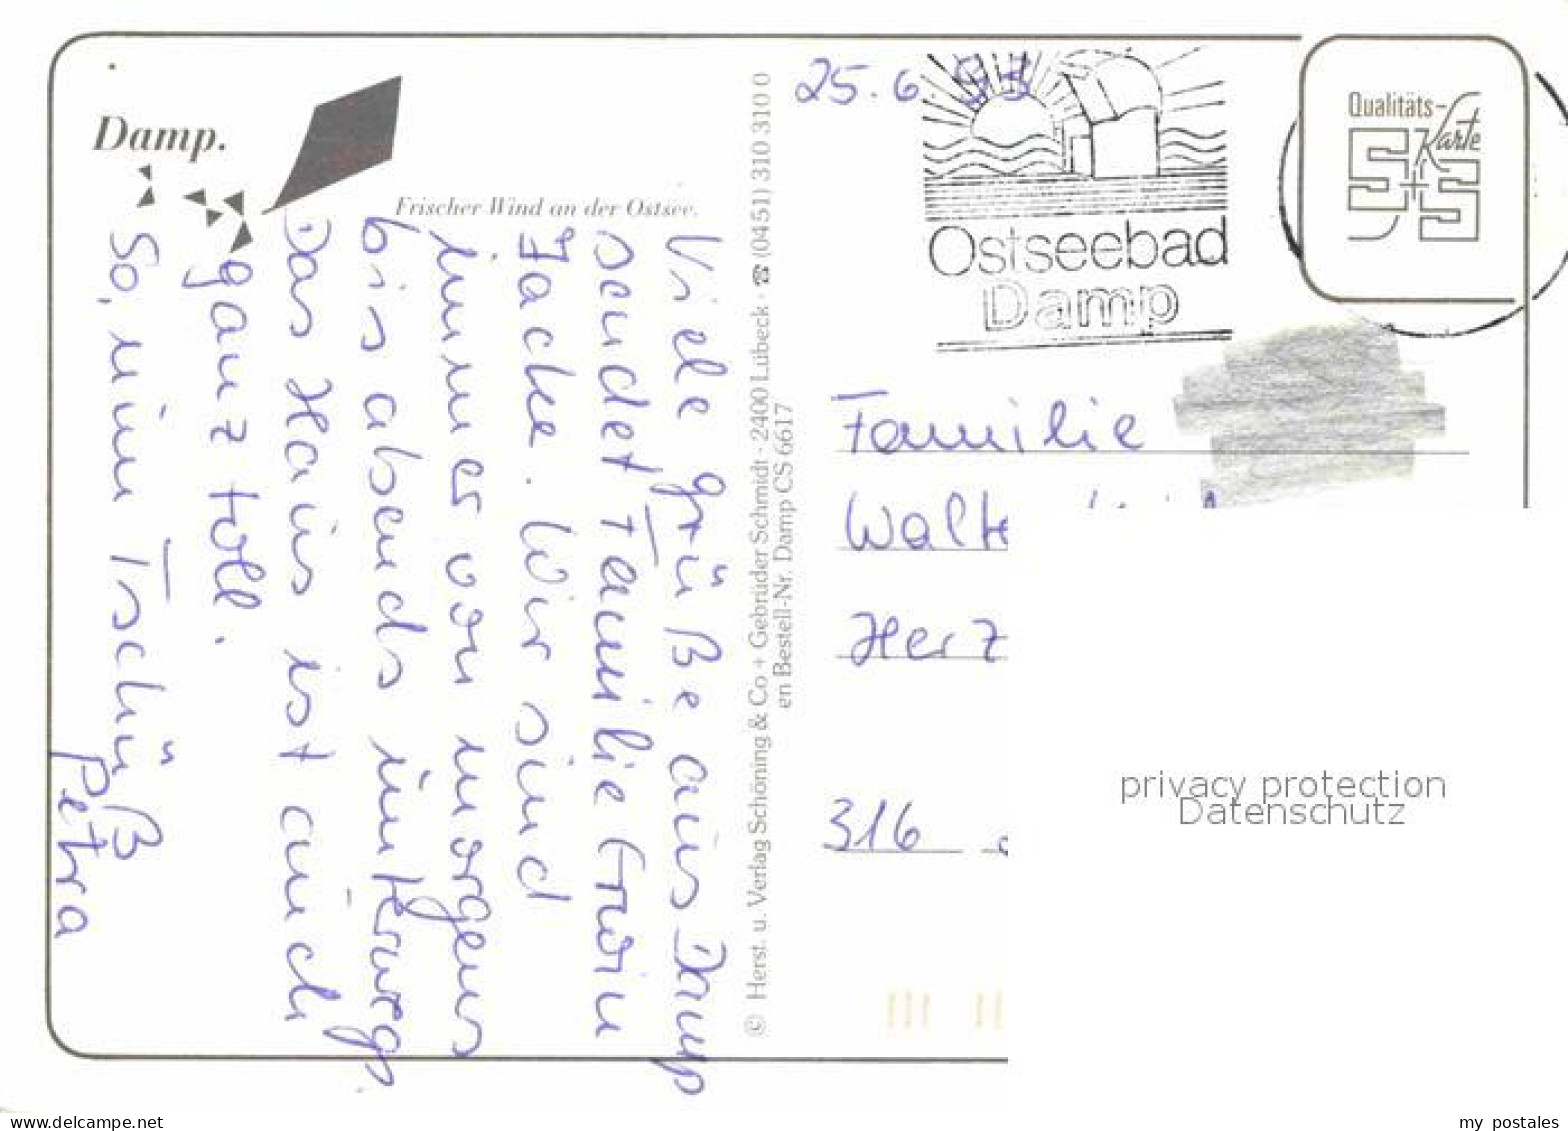 Damp.
Frischer Wind an der Ostsee.
Viele Grüße aus Damp
sendet Familie Erwin
Jacke. Wir sind
immer von morgens
bis abends unterwegs.
Das Haus ist auch
ganz toll.
So, nun Tschüß
Petra
© Herst. u. Verlag Schöning & Co + Gebrüder Schmidt · 2400 Lübeck · ☎ (0451) 310 310 0
en Bestell-Nr. Damp CS 6617
25.6.93
Ostseebad
Damp
Qualitäts-
Karte
S+S
Familie
Walt
Herz
316
privacy protection
Datenschutz
www.delcampe.net
my_postales